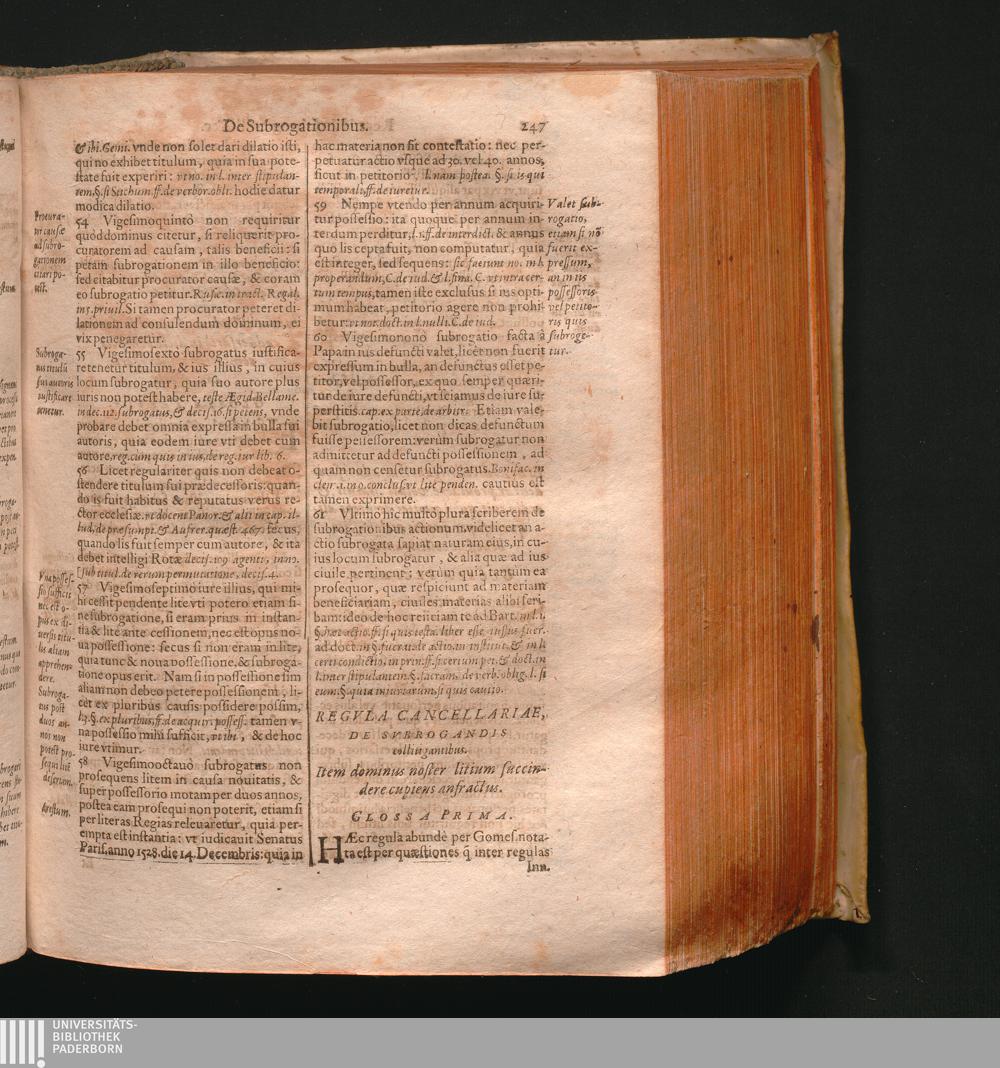 De Subrogationibus. 247
& ibi. Gemi. vnde non solet dari dilatio isti,
qui no exhibet titulum, quia in sua pote-
state fuit experiri: vt no. in l. inter stipulan-
tem, §. si Stichum ff. de verbor. obli. hodie datur
modica dilatio.
54 Vigesimoquintò non requiritur
quòd dominus citetur, si reliquerit pro-
curatorem ad causam, talis beneficii: si
petam subrogationem in illo beneficio:
sed citabitur procurator causæ, & coram
eo subrogatio petitur. Rufæ. in tract. Regal.
in 5. priuil. Si tamen procurator peteret di-
lationem ad consulendum dominum, ei
vix penegaretur.
55 Vigesimosextò subrogatus iustifica-
re tenetur titulum, & ius illius, in cuius
locum subrogatur, quia suo autore plus
iuris non potest habere, teste Ægid. Bellame.
in dec. 112. subrogatus, & decis. 16. si petens, vnde
probare debet omnia expressa in bulla sui
autoris, quia eodem iure vti debet cum
autore, reg. cum quis in ius, de reg. iur lib. 6.
56 Licet regulariter quis non debeat o-
stendere titulum sui prædecessoris: quan-
do is fuit habitus & reputatus verus re-
ctor ecclesiæ. vt docent Panor. & alii in cap. il-
lud, de præsumpt. & Aufrer. quæst. 467. secus,
quando lis fuit semper cum autore, & ita
debet intelligi Rotæ decis. 109 agenti, in no.
sub titul. de rerum permutatione, decis. 4.
57 Vigesimoseptimò iure illius, qui mi-
hi cessit pendente lite vti potero etiam si-
ne subrogatione, si eram prius in instan-
tia & lite ante cessionem, nec est opus no-
ua possessione: secus si non eram in lite,
quia tunc & noua possessione, & subroga-
tione opus erit. Nam si in possessione sim
aliam non debeo petere possessionem, li-
cèt ex pluribus causis possidere possim,
l. 3. §. ex pluribus, ff. de acquir. possess. tamen v-
na possessio mihi sufficit, vt ibi, & de hoc
iure vtimur.
58 Vigesimooctauò subrogatus non
prosequens litem in causa nouitatis, &
super possessorio motam per duos annos,
postea eam prosequi non poterit, etiam si
per literas Regias releuaretur, quia per-
empta est instantia: vt iudicauit Senatus
Paris. anno 1528. die 14. Decembris: quia in
Procura-
tor causæ
ad subro-
gationem
citari po-
test.
Subroga-
tus titulũ
sui autoris
iustificare
tenetur.
Vna posses-
sio sufficit
nec est o-
pus ex di-
uersis titu-
lis aliam
apprehen-
dere.
Subroga-
tus post
duos an-
nos non
potest pro-
sequi lite
desertam.
Arestum.
hac materia non fit contestatio: nec per-
petuatur actio vsque ad 30. vel 40. annos,
sicut in petitorio. l. nam postea. §. si is qui
temporali, ff. de iureiur.
59 Nempe vtendo per annum acquiri-
tur possessio: ita quoque per annum in-
terdum perditur, l. 1. ff. de interdict. & annus
quo lis cepta fuit, non computatur, quia
est integer, sed sequens: sic faciunt no. in l.
properandum, C. de iud. & l. fina. C. vt intra cer-
tum tempus, tamen iste exclusus si ius opti-
mum habeat, petitorio agere non prohi-
betur: vt not. doct. in l. nulli. C. de iud.
60 Vigesimonono subrogatio facta à
Papa in ius defuncti valet, licèt non fuerit
expressum in bulla, an defunctus esset pe-
titor, vel possessor, ex quo semper quæri-
tur de iure defuncti, vt sciamus de iure su-
perstitis. cap. ex parte, de arbitr. Etiam vale-
bit subrogatio, licet non dicas defunctum
fuisse possessorem: verùm subrogatur non
admittetur ad defuncti possessionem, ad
quam non censetur subrogatus. Bonifac. in
clem. 1. in 9. conclus. vt lite penden. cautius est
tamen exprimere.
61 Vltimò hîc multò plura scriberem de
subrogationibus actionum. videlicet an a-
ctio subrogata sapiat naturam eius, in cu-
ius locum subrogatur, & alia quæ ad ius
ciuile pertinent: verùm quia tantùm ea
prosequor, quæ respiciunt ad materiam
beneficiariam, ciuiles materias alibi scri-
bam: ideo de hoc reiiciam te ad Bart. in l. 1.
§. hæc actio. ff. si quis testa. liber esse iussus fuer.
ad doct. in §. fuerat. de actio. in institut. & in l.
certi condictio, in prin. ff. si certum pet. & doct. in
l. inter stipulantem. §. sacram. de verb. oblig. l. si
eum. §. quia iniuriarum, si quis cautio.
REGVLA CANCELLARIAE,
DE SVBROGANDIS
collitigantibus.
Item dominus noster litium succin-
dere cupiens anfractus.
GLOSSA PRIMA.
HÆc regula abundè per Gomes. nota-
ta est per quæstiones q̃ inter regulas
Inn.
Valet sub-
rogatio,
etiam si nõ
fuerit ex-
pressum,
an in ius
possessoris
vel petito-
ris quis
subroge-
tur.
UNIVERSITÄTS-
BIBLIOTHEK
PADERBORN